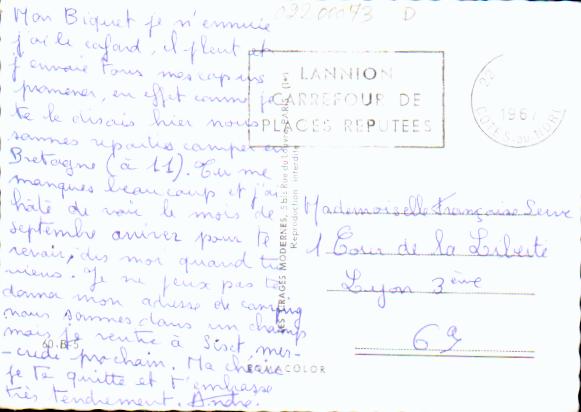 02200173 D
Mon Biquet je m'ennuie
j'ai le cafard, il pleut et
j'envoie tous mes copains
promener, en effet comme je
te le disais hier nous
sommes repartis camper en
Bretagne (à 11). Tu me
manques beaucoup et j'ai
hâte de voir le mois de
septembre arriver pour te
revoir, dis moi quand tu
viens. Je ne peux pas te
donner mon adresse de camping
nous sommes dans un champ
mais je rentre à mer-
-credi prochain. Ma chérie
je te quitte et t'embrasse
très tendrement. André.
LANNION
CARREFOUR DE
PLAGES REPUTEES
1967
COTES-DU-NORD
LES TIRAGES MODERNES, 5 bis Rue du Louvre, PARIS (1er)
Reproduction interdite
Mademoiselle Françoise Serve
1 Cour de la Liberté
Lyon 3ème
69
COLOR